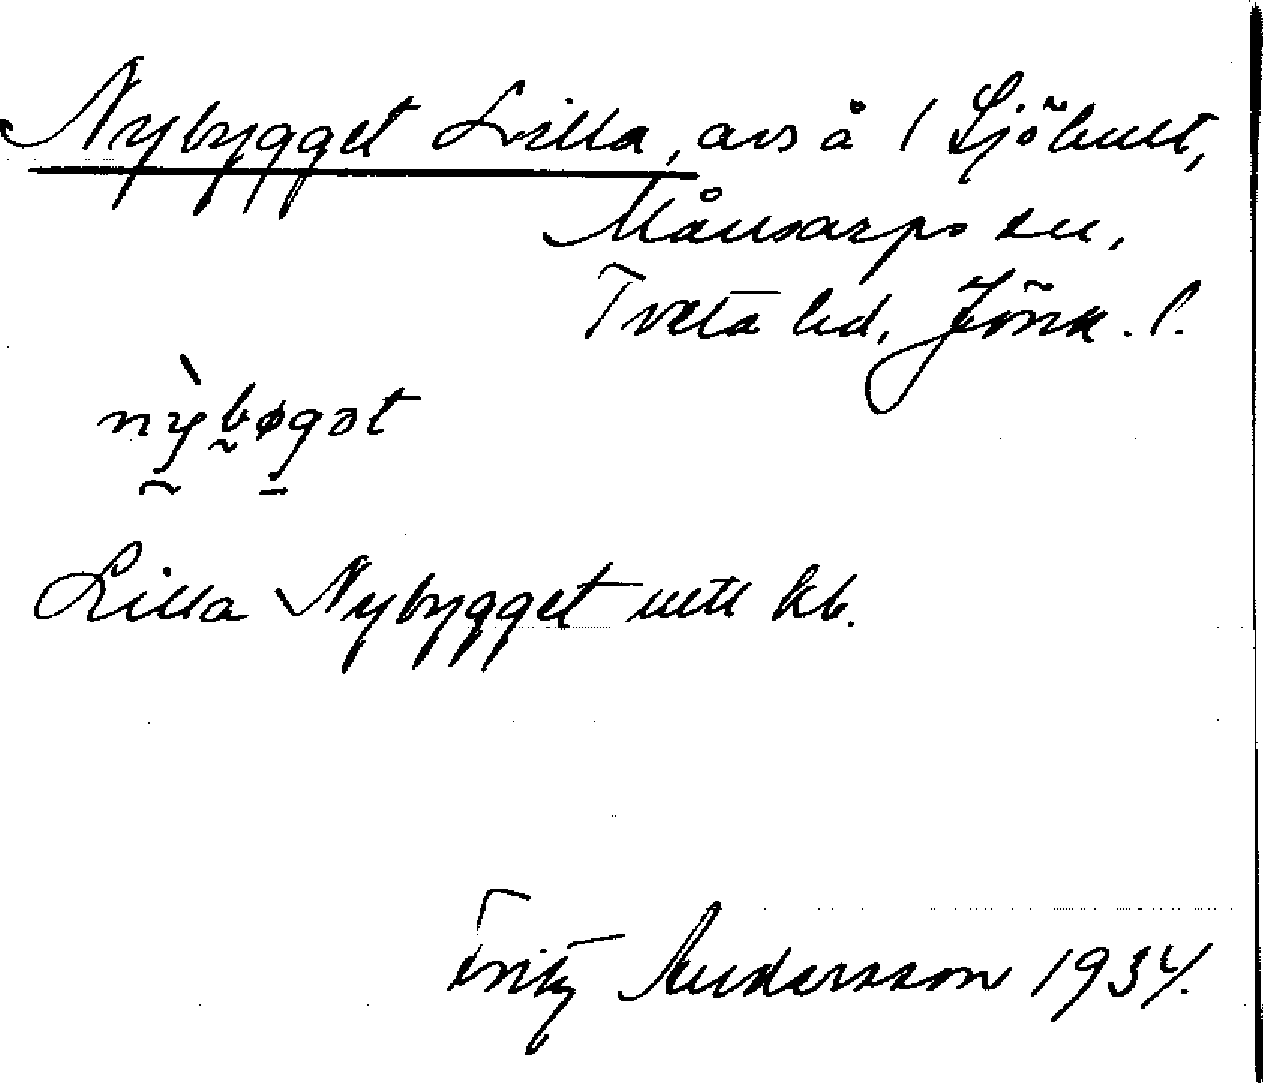 Nybygget Lilla, avs å 1 Sjöhult,
Månsarps sn,
Tveta hd, Jönk. l.
nỳbøgət
Lilla Nybygget utt kb.
Fritz Andersson 1934.